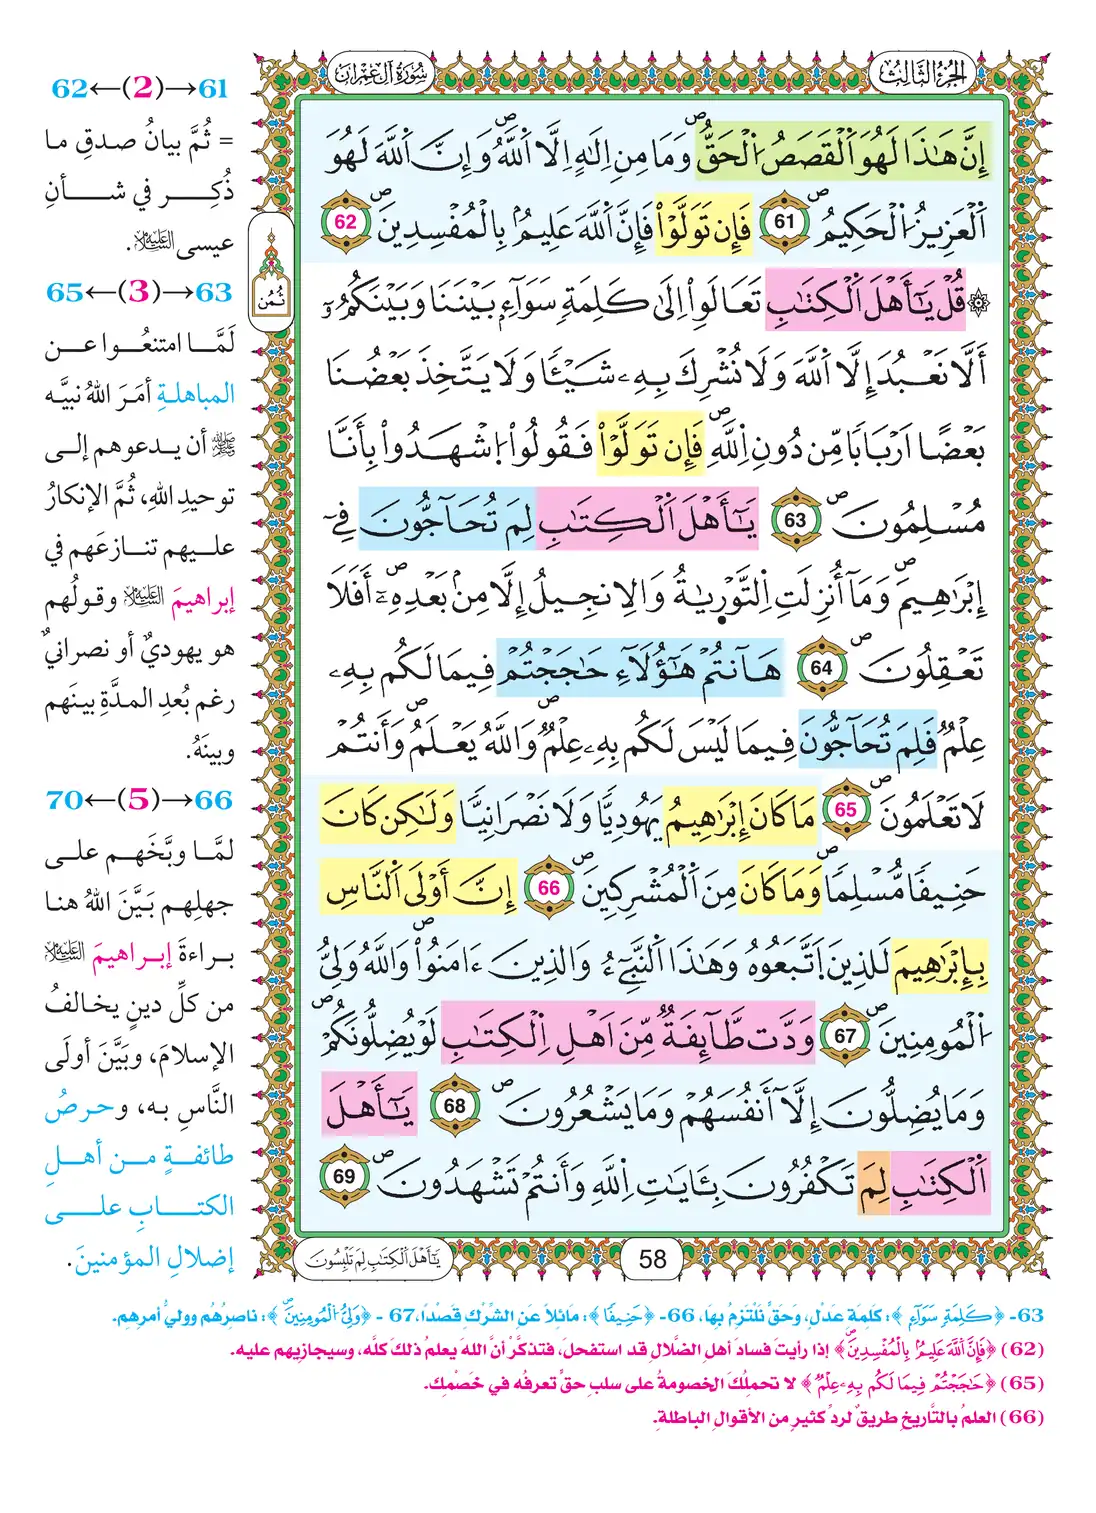 الجزء الثالث
سورة آل عمران
إِنَّ هَٰذَا لَهُوَ اَلْقَصَصُ اُلْحَقُّ وَمَا مِنِ اِلَٰهٍ اِلَّا اَللَّهُ وَإِنَّ اَللَّهَ لَهُوَ
اَلْعَزِيزُ اُلْحَكِيمُ 61 فَإِن تَوَلَّوْاْ فَإِنَّ اَللَّهَ عَلِيمُۢ بِالْمُفْسِدِينَ 62
۞ قُلْ يَٰٓأَهْلَ اَلْكِتَٰبِ تَعَالَوِاْ اِلَىٰ كَلِمَةٖ سَوَآءِۭ بَيْنَنَا وَبَيْنَكُمُۥٓ
أَلَّا نَعْبُدَ إِلَّا اَللَّهَ وَلَا نُشْرِكَ بِهِۦ شَيْـٔٗا وَلَا يَتَّخِذَ بَعْضُنَا
بَعْضًا اَرْبَابٗا مِّن دُونِ اِللَّهِ فَإِن تَوَلَّوْاْ فَقُولُواْ اُشْهَدُواْ بِأَنَّا
مُسْلِمُونَ 63 يَٰٓأَهْلَ اَلْكِتَٰبِ لِمَ تُحَآجُّونَ فِےٓ
إِبْرَٰهِيمَ وَمَآ أُنزِلَتِ اِلتَّوْر۪يٰةُ وَالِانجِيلُ إِلَّا مِنۢ بَعْدِهِۦٓ أَفَلَا
تَعْقِلُونَ 64 هَآنتُمْ هَٰٓؤُلَآءِ حَٰجَجْتُمْ فِيمَا لَكُم بِهِۦ
عِلْمٞ فَلِمَ تُحَآجُّونَ فِيمَا لَيْسَ لَكُم بِهِۦ عِلْمٞ وَاللَّهُ يَعْلَمُ وَأَنتُمْ
لَا تَعْلَمُونَ 65 مَا كَانَ إِبْرَٰهِيمُ يَهُودِيّٗا وَلَا نَصْرَانِيّٗا وَلَٰكِن كَانَ
حَنِيفٗا مُّسْلِمٗا وَمَا كَانَ مِنَ اَلْمُشْرِكِينَ 66 إِنَّ أَوْلَى اَلنَّاسِ
بِإِبْرَٰهِيمَ لَلذِينَ اَتَّبَعُوهُ وَهَٰذَا اَلنَّبِےٓءُ وَالذِينَ ءَامَنُواْ وَاللَّهُ وَلِيُّ
اُلْمُومِنِينَ 67 وَدَّت طَّآئِفَةٞ مِّنَ اَهْلِ اِلْكِتَٰبِ لَوْ يُضِلُّونَكُمْ
وَمَا يُضِلُّونَ إِلَّآ أَنفُسَهُمْ وَمَا يَشْعُرُونَ 68 يَٰٓأَهْلَ
اَلْكِتَٰبِ لِمَ تَكْفُرُونَ بِـَٔايَٰتِ اِللَّهِ وَأَنتُمْ تَشْهَدُونَ 69
58
يَٰٓأَهْلَ اَلْكِتَٰبِ لِمَ تَلْبِسُونَ
ثُمُن
61→(2)←62
= ثُمَّ بيانُ صدقِ ما
ذُكِر في شأنِ
عيسى عليه السلام.
63→(3)←65
لَمَّا امتنعُوا عن
المباهلةِ أمَرَ اللهُ نبيَّه
ﷺ أن يدعوهم إلى
توحيدِ اللهِ، ثُمَّ الإنكارُ
عليهم تنازعَهم في
إبراهيمَ عليه السلام وقولُهم
هو يهوديٌ أو نصرانيٌ
رغم بُعدِ المدَّةِ بينَهم
وبينَهُ.
66→(5)←70
لمَّا وبَّخَهم على
جهلِهم بَيَّنَ اللهُ هنا
براءةَ إبراهيمَ عليه السلام
من كلِّ دينٍ يخالفُ
الإسلامَ، وبَيَّنَ أولَى
النَّاسِ به، وحرصُ
طائفةٍ من أهلِ
الكتابِ على
إضلالِ المؤمنينَ.
63- ﴿كَلِمَةٖ سَوَآءِۭ﴾: كَلِمَةِ عَدْلٍ، وَحَقٍّ نَلْتَزِمُ بِهَا، 66- ﴿حَنِيفٗا﴾: مَائِلاً عَنِ الشِّرْكِ قَصْدًا، 67 - ﴿وَلِيُّ اُلْمُومِنِينَ﴾: ناصرُهُم ووليُّ أمرِهِم.
(62) ﴿فَإِنَّ اَللَّهَ عَلِيمُۢ بِالْمُفْسِدِينَ﴾ إذا رأيتَ فسادَ أهلِ الضَّلالِ قد استفحلَ، فتذكَّرْ أنَّ اللهَ يعلمُ ذلكَ كلَّه، وسيجازيهم عليه.
(65) ﴿حَٰجَجْتُمْ فِيمَا لَكُم بِهِۦ عِلْمٞ﴾ لا تحملْكَ الخصومةُ على سلبِ حقٍّ تعرفُه في خَصْمِكَ.
(66) العلمُ بالتَّاريخِ طريقٌ لردِّ كثيرٍ من الأقوالِ الباطلةِ.